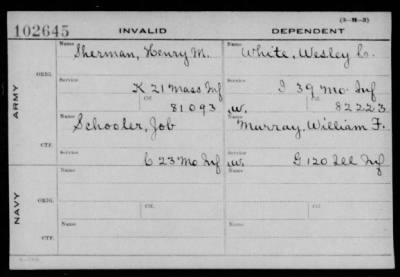 (3-M-3)
102645 INVALID DEPENDENT
Name Sherman, Henry M. Name White, Wesley L.
ARMY
ORIG.
Service K 21 Mass Inf Service I 39 Mo. Inf
Ctf. 81093 W. Ctf. 82223
Name Schooler, Job Name Murray, William F.
CTF.
Service C 23 Mo Inf W. Service G 120 Ill Inf
NAVY
ORIG.
Name Name
Ctf. Ctf.
CTF.
Name Name